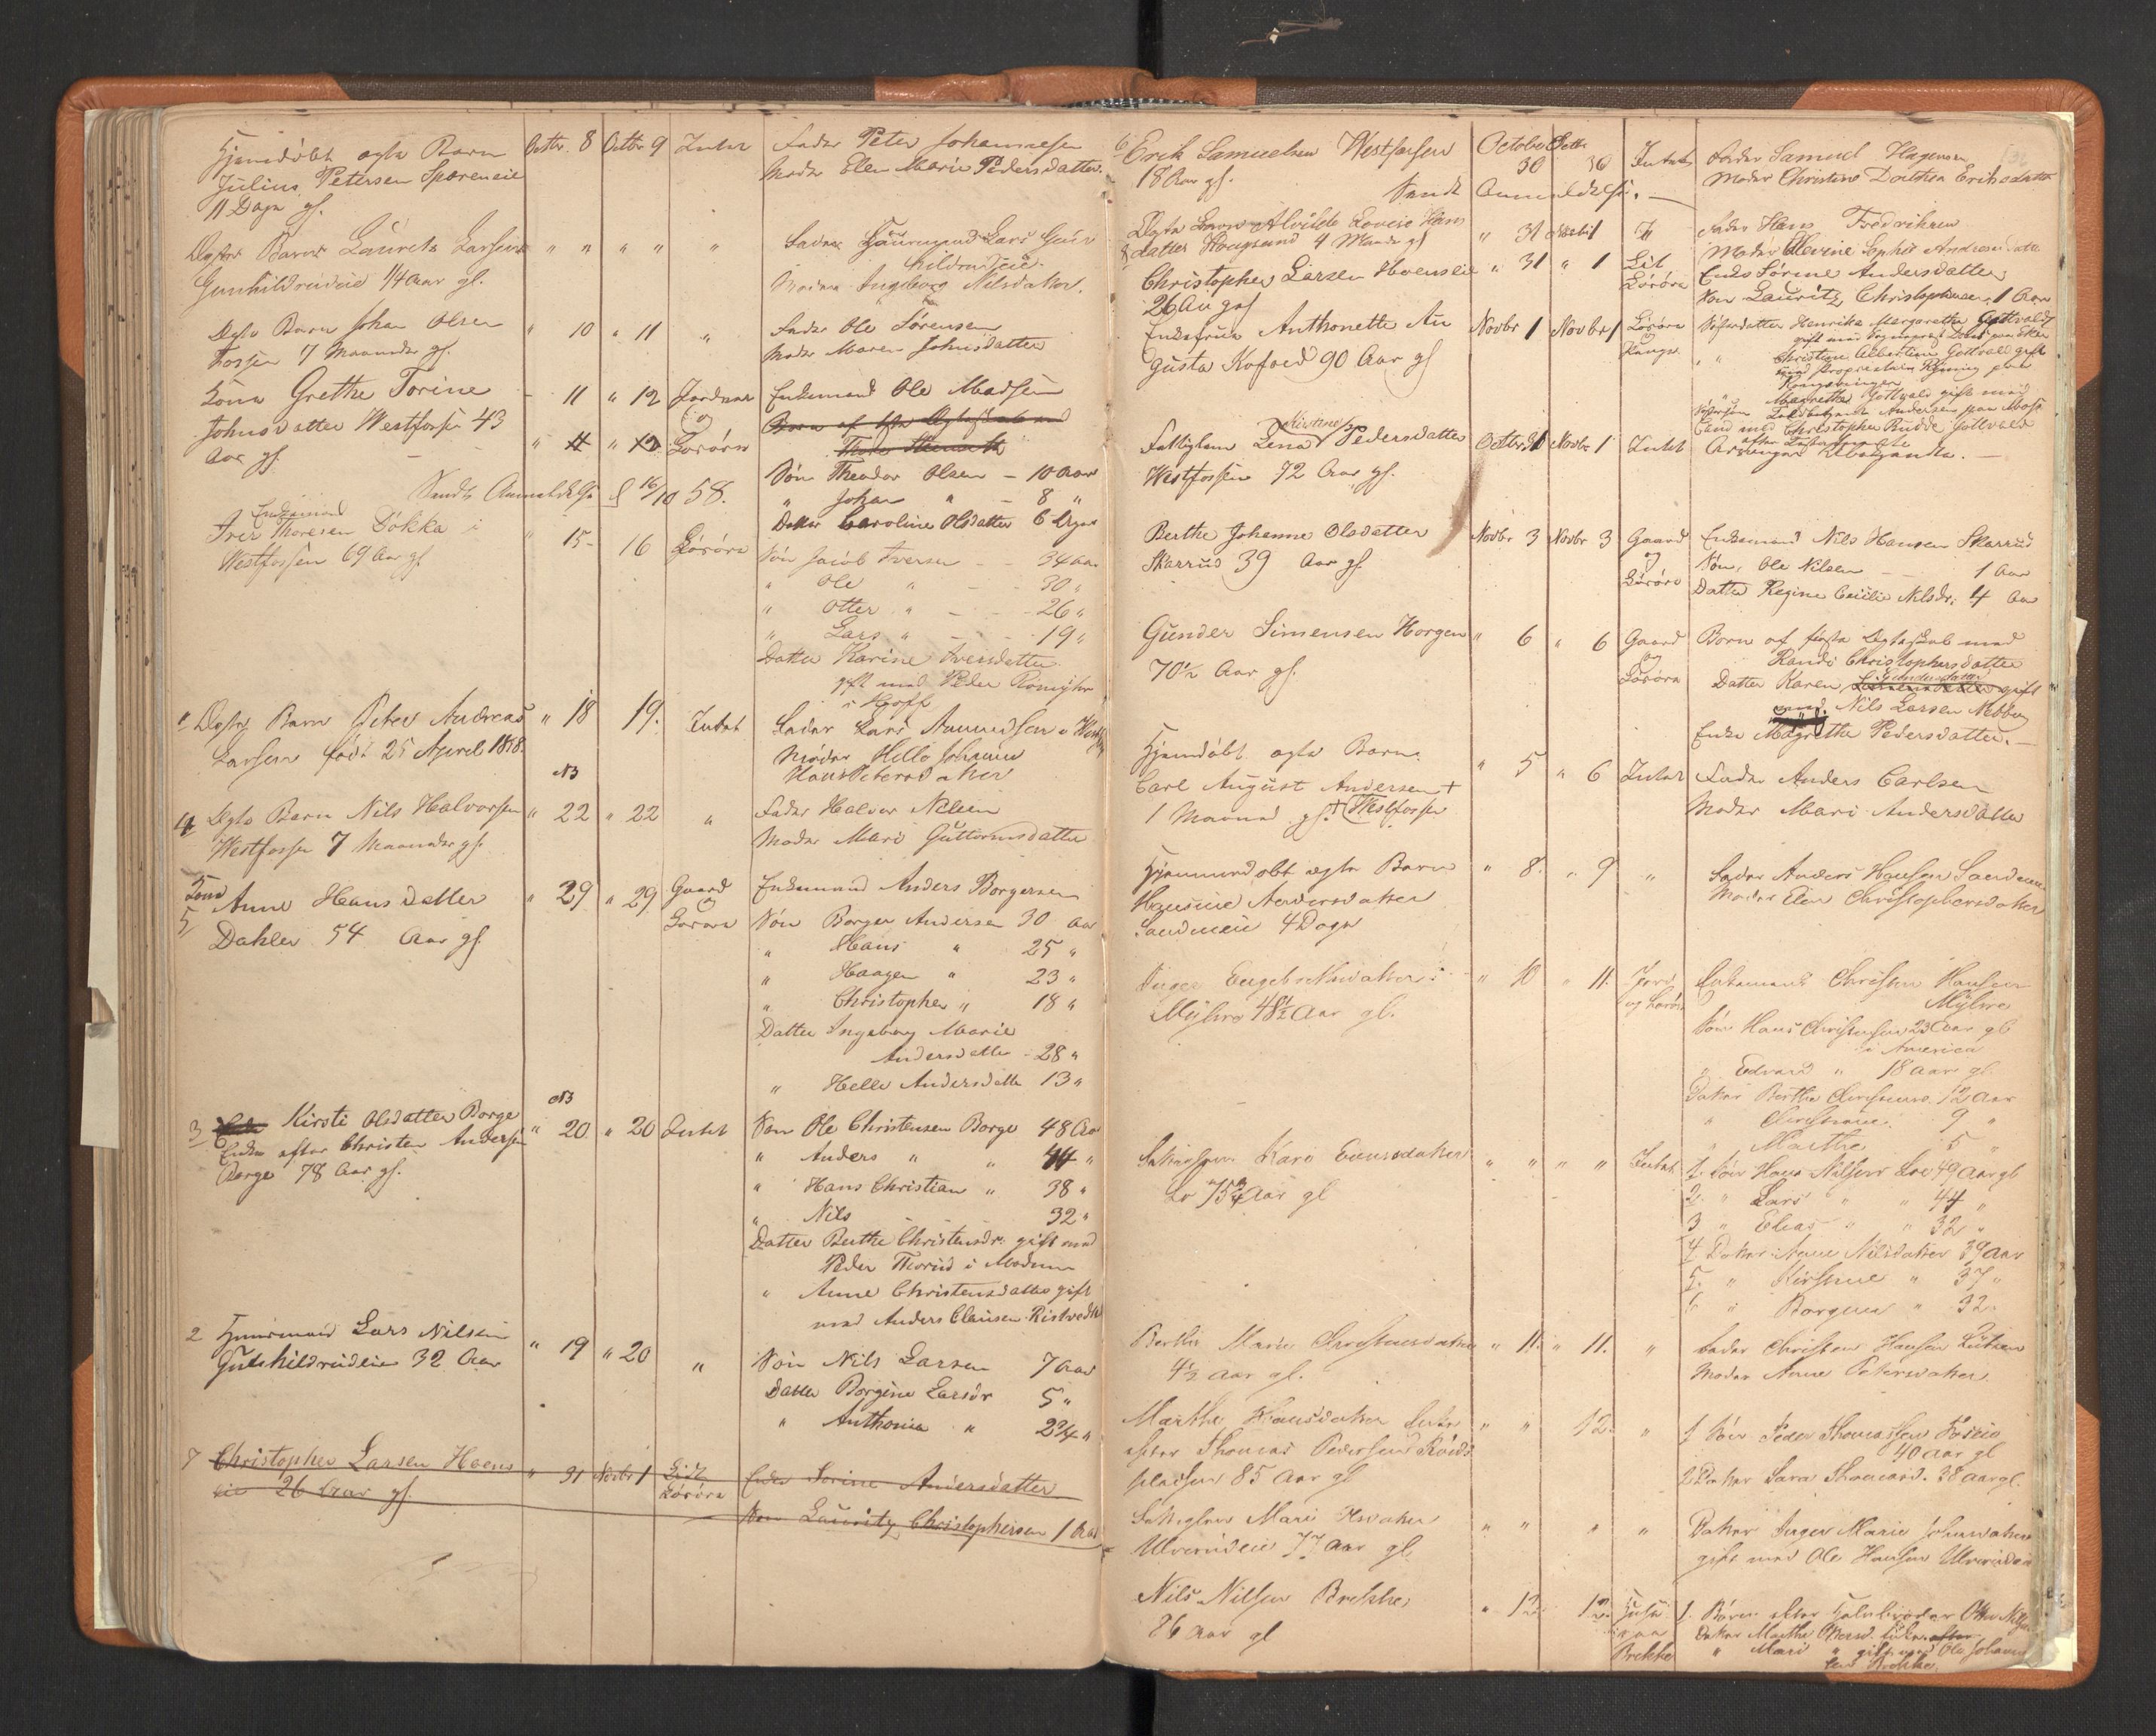 Hjemdöbt ægte Barn Octbr. 8 Octbr 9 Intet Fader Peter Johannesen
Julius Petersen Sporeneie Moder Elen Marie Pedersdatter.
11 Dage gl.
Ægte Barn Laurits Larsen " " " " " Fader Huusmand Lars Gun
Gunhildrudeie 1/4 Aar gl. hildrudeie
Moder Ingeborg Nilsdatter.
Ægte Barn Johan Olsen " 10 " 11 " Fader Ole Sörensen
Fossen 7 Maaneder gl. Moder Maren Johnsdatter
Kone Grethe Torine 11 " 12 Enkemand Ole Madsen
Johnsdatter Westfossen 43 og Börn af
Aar gl. Lösöre
Sön Theodor Olsen – 10 Aar
Sendt Anmeldelse d 16/10 58. " Johan " – 8 "
Datter Caroline Olsdatter 6
Enkemand
Iver Thoresen Dökka i " 15 – 16 Lösöre Sön Jacob Iversen – – 34 Aar
Westfossen 69 Aar gl " Ole " – – 30 "
" Otter " – – 26 "
" Lars " – – 19 "
Datter Karine Iversdatter
gift med Peder
i Hoff
Ægte Barn Peter Andreas " 18 19. Intet Fader Lars Amundsen
Larsen födt 25 April 1858. Moder Helle Johanne
Hans Petersdatter
NB
4 Ægte Barn Nils Halvorsen " 22 " 22 " Fader Halvor Nilsen
Westfossen 7 Maaneder gl. Moder Mari Guttormsdatter
Kone
5 Anne Hansdatter " 29 " 29 Gaard Enkemand Anders Borgersen
Dahler 54 Aar gl og Lösöre Sön Borger Andersen 30 Aar
" Hans " 25 "
" Haagen " 23 "
" Christopher " 18 "
Datter Ingeborg Marie
Andersdatter – 28 "
" Helle Andersdatte 13 "
NB
3 Kirsti Olsdatter Borge " 20 " 20 Intet Sön Ole Christensen Borge 48 Aar
Enke efter Christen Andersen " Anders " " 44 "
Borge 78 Aar gl. " Hans Christian " 38 "
" Nils 32 "
Datter Berthe Christensdr. gift med
Peder i Modum
" Anne Christensdatter gift
med Anders Clausen
2 Huusmand Lars Nilsen " 19 " 20 " Sön Nils Larsen 7 Aar
Gunhildrudeie 32 Aar Datter Borgine Larsdr 5 "
" Anthonia " 2 3/4 "
7 Christopher Larsen Hoens " 31 Novbr 1 Lidt Enke Sorine Andersdatter
eie 26 Aar gl. Lösöre
Sön Lauritz Christophersen 1 Aar
6 Erik Samuelsen Westfossen October 30 Octbr 30 Intet Fader Samuel Hagensen
18 Aar gl. Moder Christine Dorthea Eriksdatter
Sendt Anmeldelse. –
Ægte Barn Alvilde Lovise Hans " 31 Novbr 1 Fader Hans Fredriksen
8 datter Haugsund 4 Maaneder gl Moder Olevine Sophie Andreasdatte
Christopher Larsen Hoenseie " 31 " 1 Lidt Enke Sorine Andersdatter
26 Aar gl Lösöre Sön Lauritz Christophersen 1 Aar
Enkefrue Anthonette Au Novbr 1 Novbr 1 Lösöre Sösterdatter Henrika Margaretha Gottvaldt
gusta Kofoed 90 Aar gl og Penge. gift med
" " Christiane Albertine Gottvald gift
med Proprietair
Kongsvinger
" Magrethe Gottvald gift med
Andersen paa Moss
Söstersön med Christopher Budde Gottvald
Nicoline
Fattiglem Lena Pedersdatter Octbr 31 Novbr 1 Intet Arvinger Ubekjendte. –
Westfossen 72 Aar gl.
Berthe Johanne Olsdatter Novbr 3 Novbr 3 Gaard Enkemand Nils Hansen Skarrud
Skarrud 39 Aar gl. og Lösöre Sön, Ole Nilsen 1 Aar
Datter Regine Cecilie Nilsdr. 4 Aar
Gunder Simensen Horgen " 6 " 6 Gaard Born af förste Ægteskab med
70 1/2 Aar gl. og Lösöre Randi Christophersdatter
Datter Karen Gundersdatter gift
med Nils Larsen Nebberg
Enke Magrethe Pedersdatter. –
Hjemdöbt ægte Barn " 5 " 6 Intet Fader Anders Carlsen
Carl August Andersen + Moder Mari Andersdatter
1 Maaned gl. + Westfossen
Hjemmedöbt ægte Barn " 8. " 9 " Fader Anders Hansen Sandmeie
Hansine Andersdatter Moder Elen Christophersdatter
Sandmeie 4 Dage
Inger Engebretsdatter " 10 " 11. Jord Enkemand Christen Hansen
Myhre 48 1/2 Aar gl. og Lösöre Myhre
Sön Hans Christensen 23 Aar gl
i America
" Edvard " 18 Aar gl.
Datter Berthe 12 Aar
" Christiane 9 "
" Marthe 5 "
Kari Evensdatter " " " " Intet 1. Sön Hans Nilsen Loe 49 Aar gl
Lo 75 3/4 Aar gl 2. " Lars " " 44 "
3 " Elias " " 32 "
4 Datter Anne Nilsdatter 39 Aar
5. " Kirstine " 37 "
6 " Borgine " 32.
Berthe Marie Christensdatter " 11. " 11. " Fader Christen Hansen
4 1/2 Aar gl. Moder Anne Petersdatter.
Marthe Hansdatter Enke " " 12. " 1 Sön Peder Thomassen
efter Thomas Pedersen 40 Aar gl
pladsen 85 Aar gl 2 Datter Sara Thomasd. 38 Aar gl.
Fattiglem Mari " " " " Datter Inger Marie
Ulverudeie 77 Aar gl gift med Ole Hansen Ulverudeie
Nils Nilsen Brekke " 12. 12. 1. Börn efter Halvbroder Otter Nilsen
86 Aar gl paa Brekke Datter Marthe Ottersd.
" Mari " gift med Ole Johannes
sen Brekke.